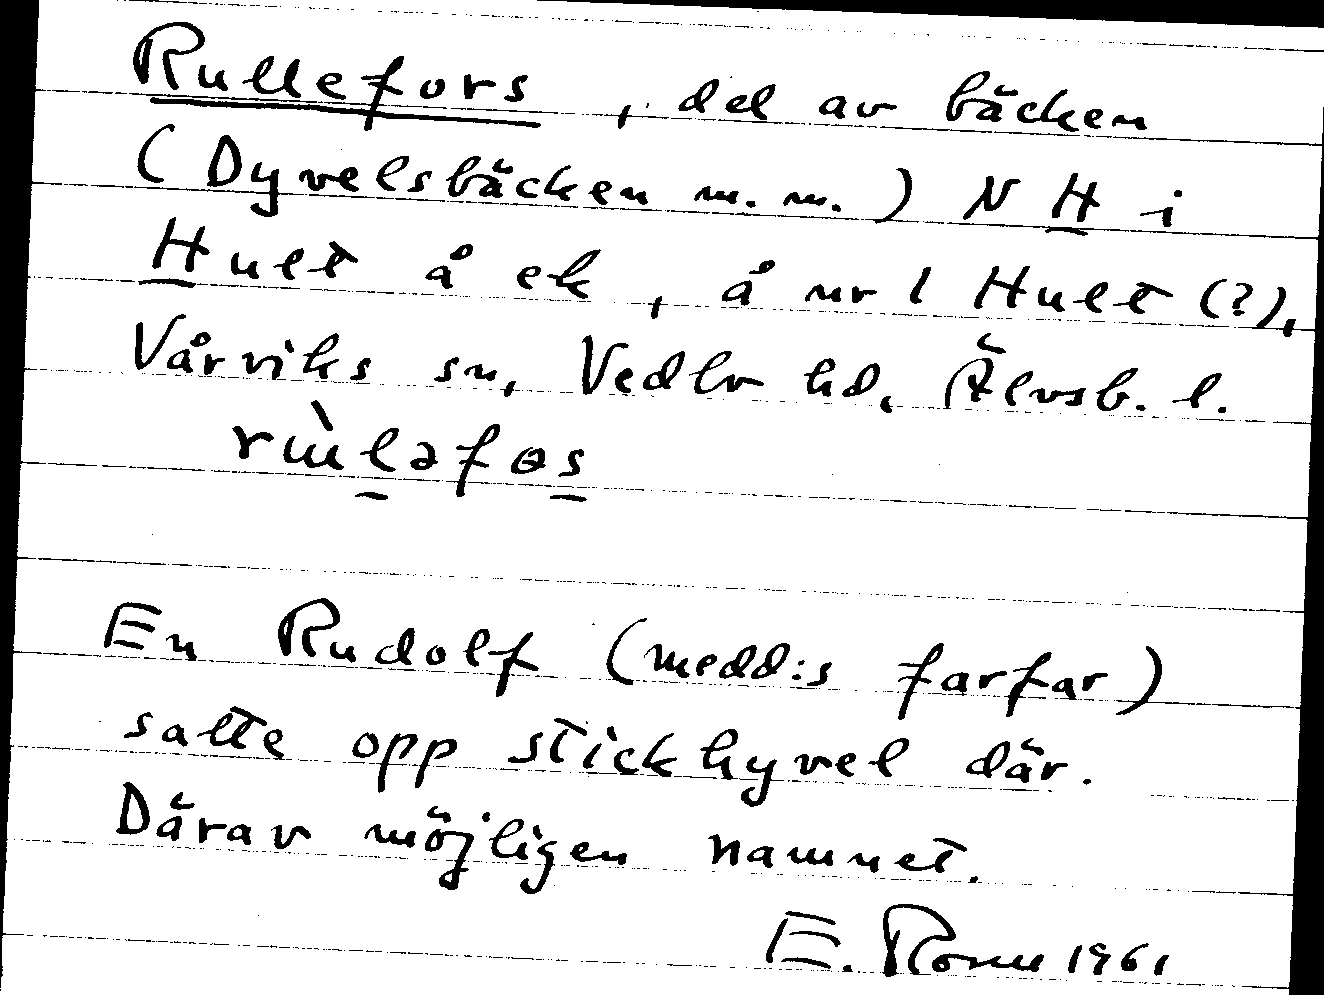 Rullefors, del av bäcken
(Dyvelsbäcken m.m.) N H i
Hult å ek, å nr 1 Hult (?),
Vårviks sn, Vedbo hd, Älvsb. l.
En Rudolf (medd:s farfar)
satte opp stickhyvel där.
Därav möjligen namnet.
E. 1961